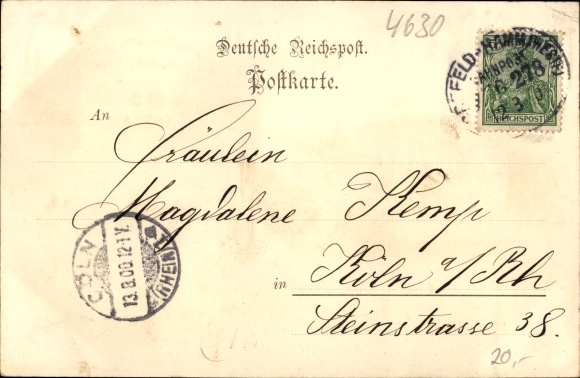 4630
Deutsche Reichspost.
Postkarte.
REICHSPOST
An
Fräulein
Magdalene Kemp
in Köln a/Rh
Steinstrasse 38.
CÖLN
13.8.00.12-1V.
(RHEIN)
20,-